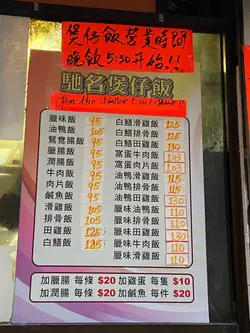 煲仔飯營業時間
晚飯5:30开始!!
馳名煲仔飯
臘味飯 95
油鴨飯 105
鴛鴦腸飯 95
臘腸飯 95
潤腸飯 95
牛肉飯 95
肉片飯 95
鹹魚飯 95
滑雞飯 105
排骨飯 105
田雞飯 125
白鱔飯 125
白鱔滑雞飯 125
白鱔排骨飯 125
白鱔田雞飯 130
窩蛋牛肉飯 103
窩蛋肉片飯 103
油鴨滑雞飯 115
油鴨排骨飯 115
油鴨田雞飯 130
臘味滑雞飯 110
臘味排骨飯 110
臘味田雞飯 130
臘味牛肉飯 110
臘味滑雞飯 110
加臘腸 每條 $20
加潤腸 每條 $20
加雞蛋 每隻 $10
加鹹魚 每件 $20